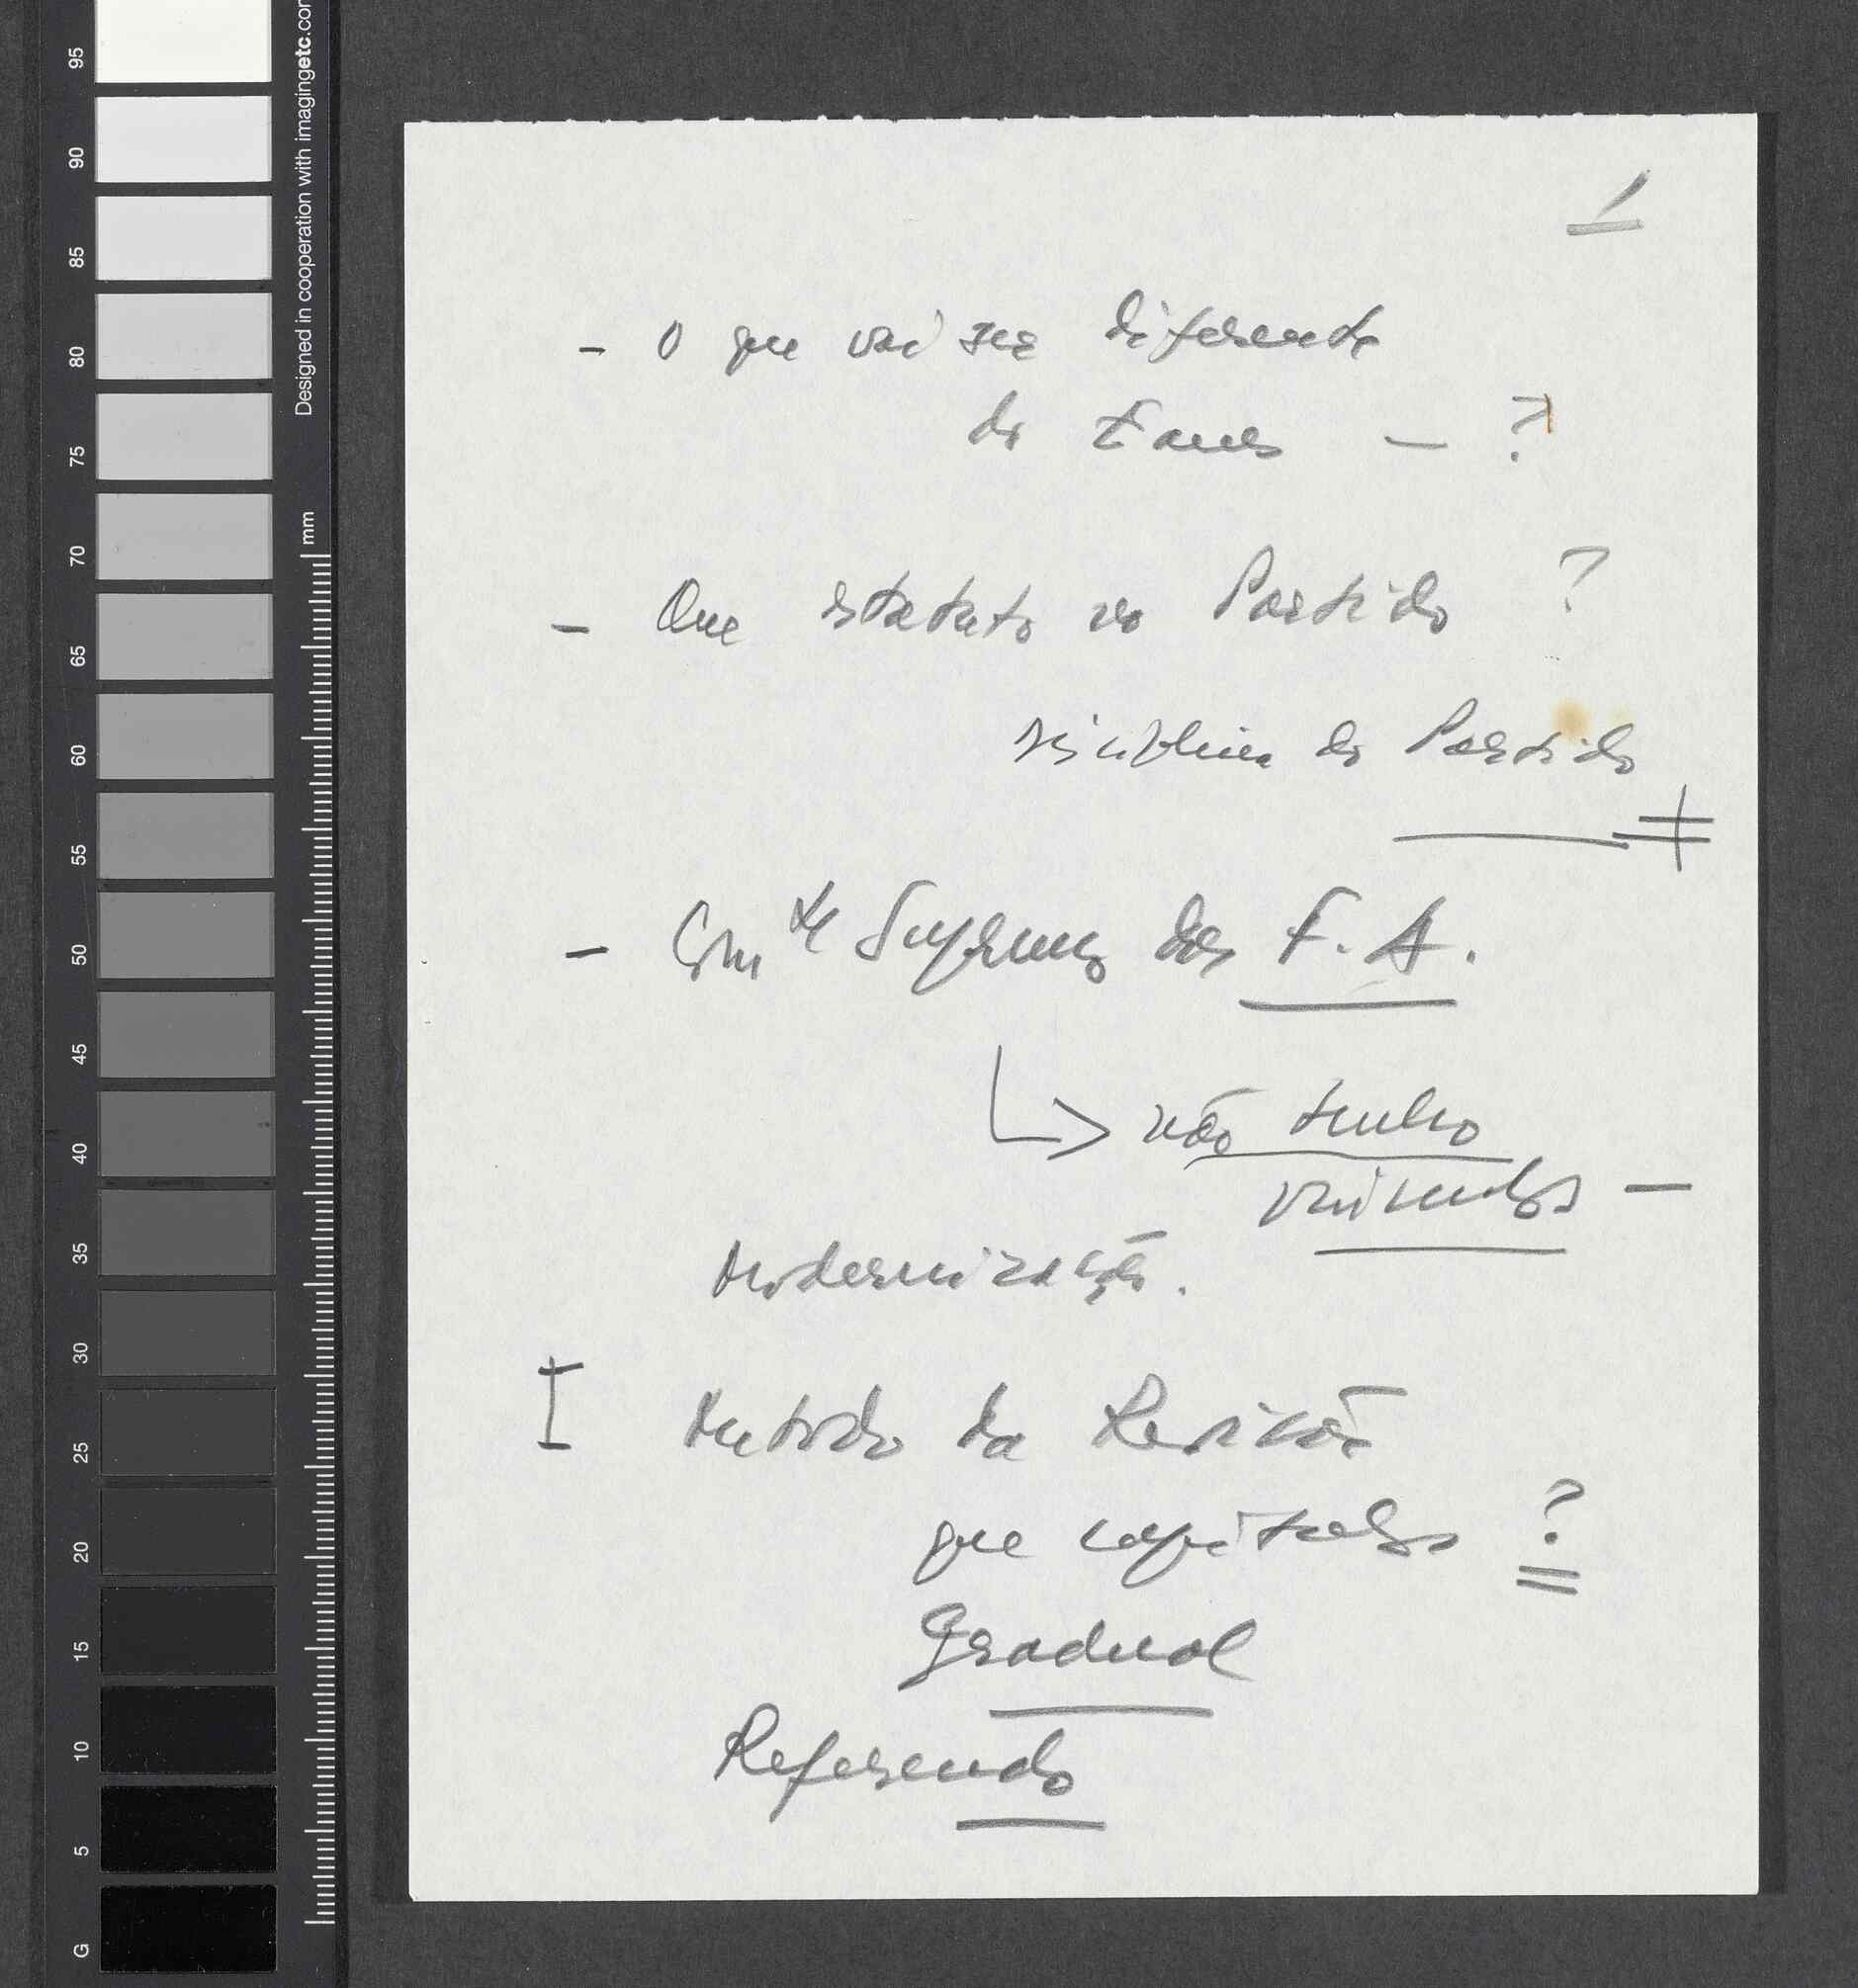 95
90
85
80
75
70
65
60
55
50
45
40
35
30
25
20
15
10
5
G
Designed in cooperation with imagingetc.com
mm
1
- O que vai ser diferente
do Eanes - ?
- Que estatuto no Partido ?
disciplina do Partido
- Com te Supremo das F. A.
não tenho
vínculos -
Modernização.
I Método da Revisão
que capítulos ?
Gradual
Referendo